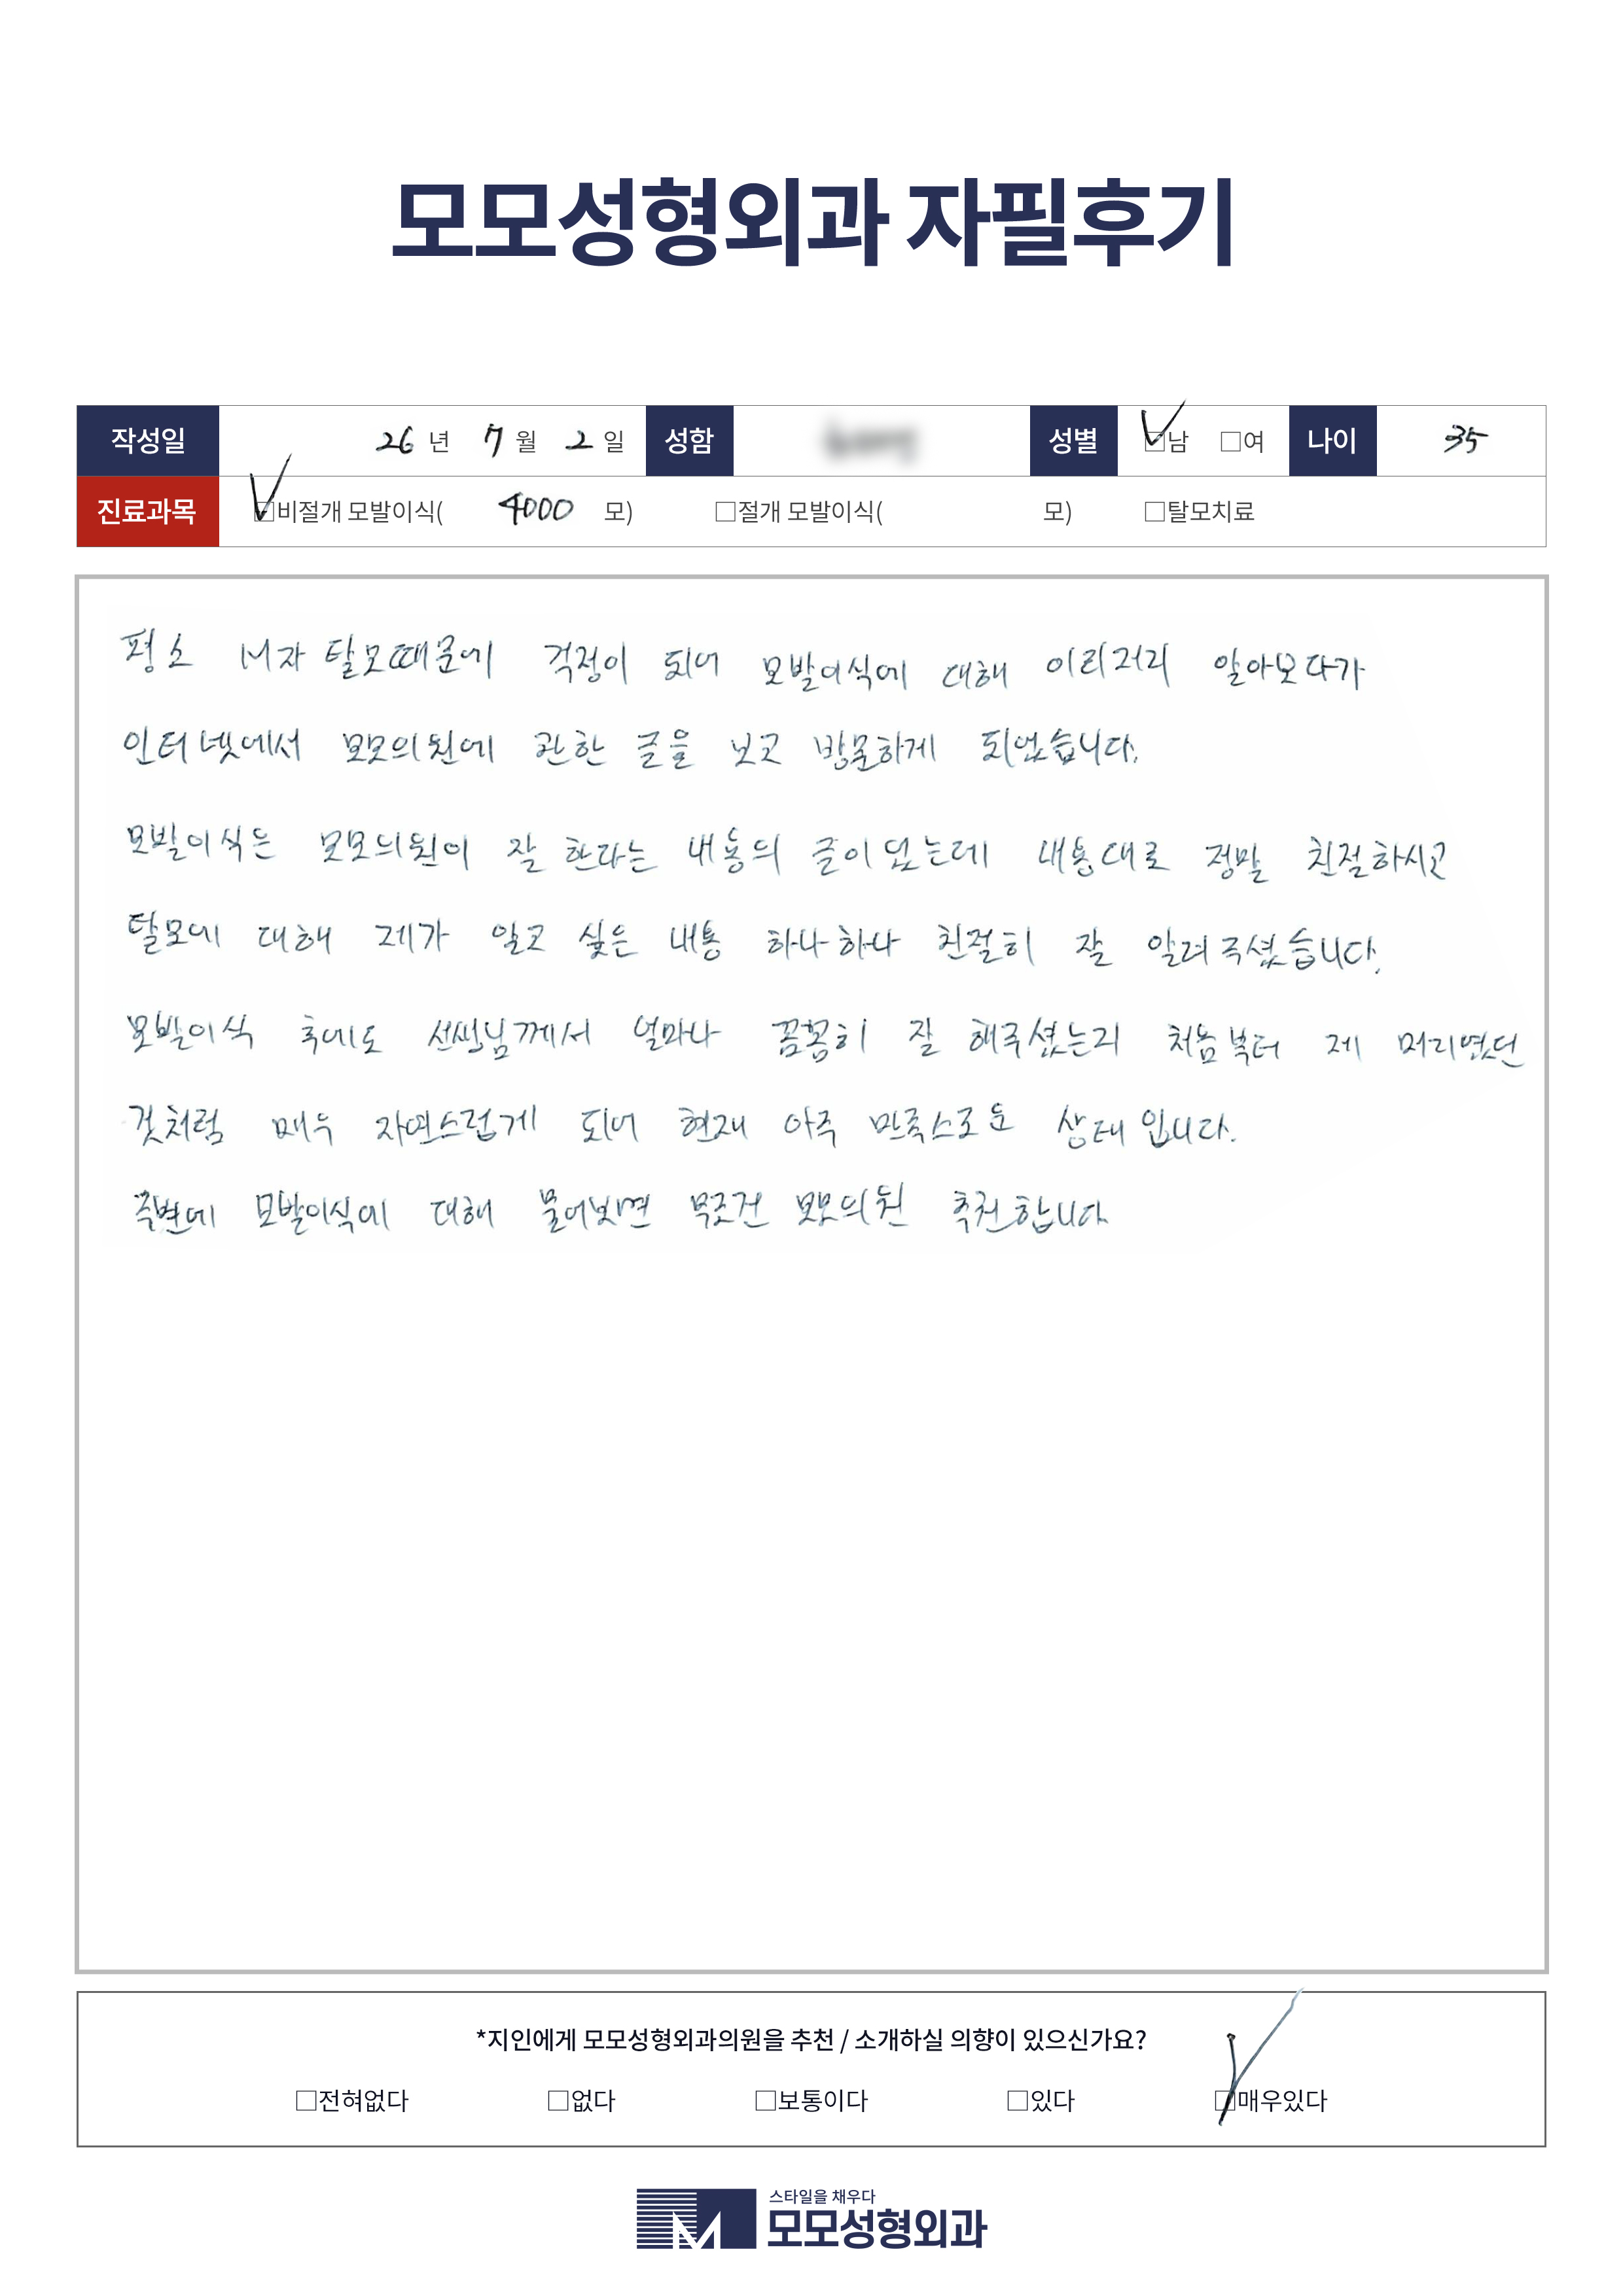 모모성형외과 자필후기
작성일 26 년 7 월 2 일 성함 성별 ☑남 □여 나이 35
진료과목 ☑비절개 모발이식( 4000 모) □절개 모발이식( 모) □탈모치료
평소 M자 탈모때문에 걱정이 되어 모발이식에 대해 이리저리 알아보다가
인터넷에서 모모의원에 관한 글을 보고 방문하게 되었습니다.
모발이식은 모모의원이 잘 한다는 내용의 글이였는데 내용대로 정말 친절하시고
탈모에 대해 제가 알고 싶은 내용 하나하나 친절히 잘 알려주셨습니다.
모발이식 후에도 선생님께서 얼마나 꼼꼼히 잘 해주셨는지 처음부터 제 머리였던
것처럼 매우 자연스럽게 되어 현재 아주 만족스로운 상태입니다.
주변에 모발이식에 대해 물어보면 무조건 모모의원 추천합니다
*지인에게 모모성형외과의원을 추천 / 소개하실 의향이 있으신가요?
□전혀없다 □없다 □보통이다 □있다 ☑매우있다
스타일을 채우다
모모성형외과